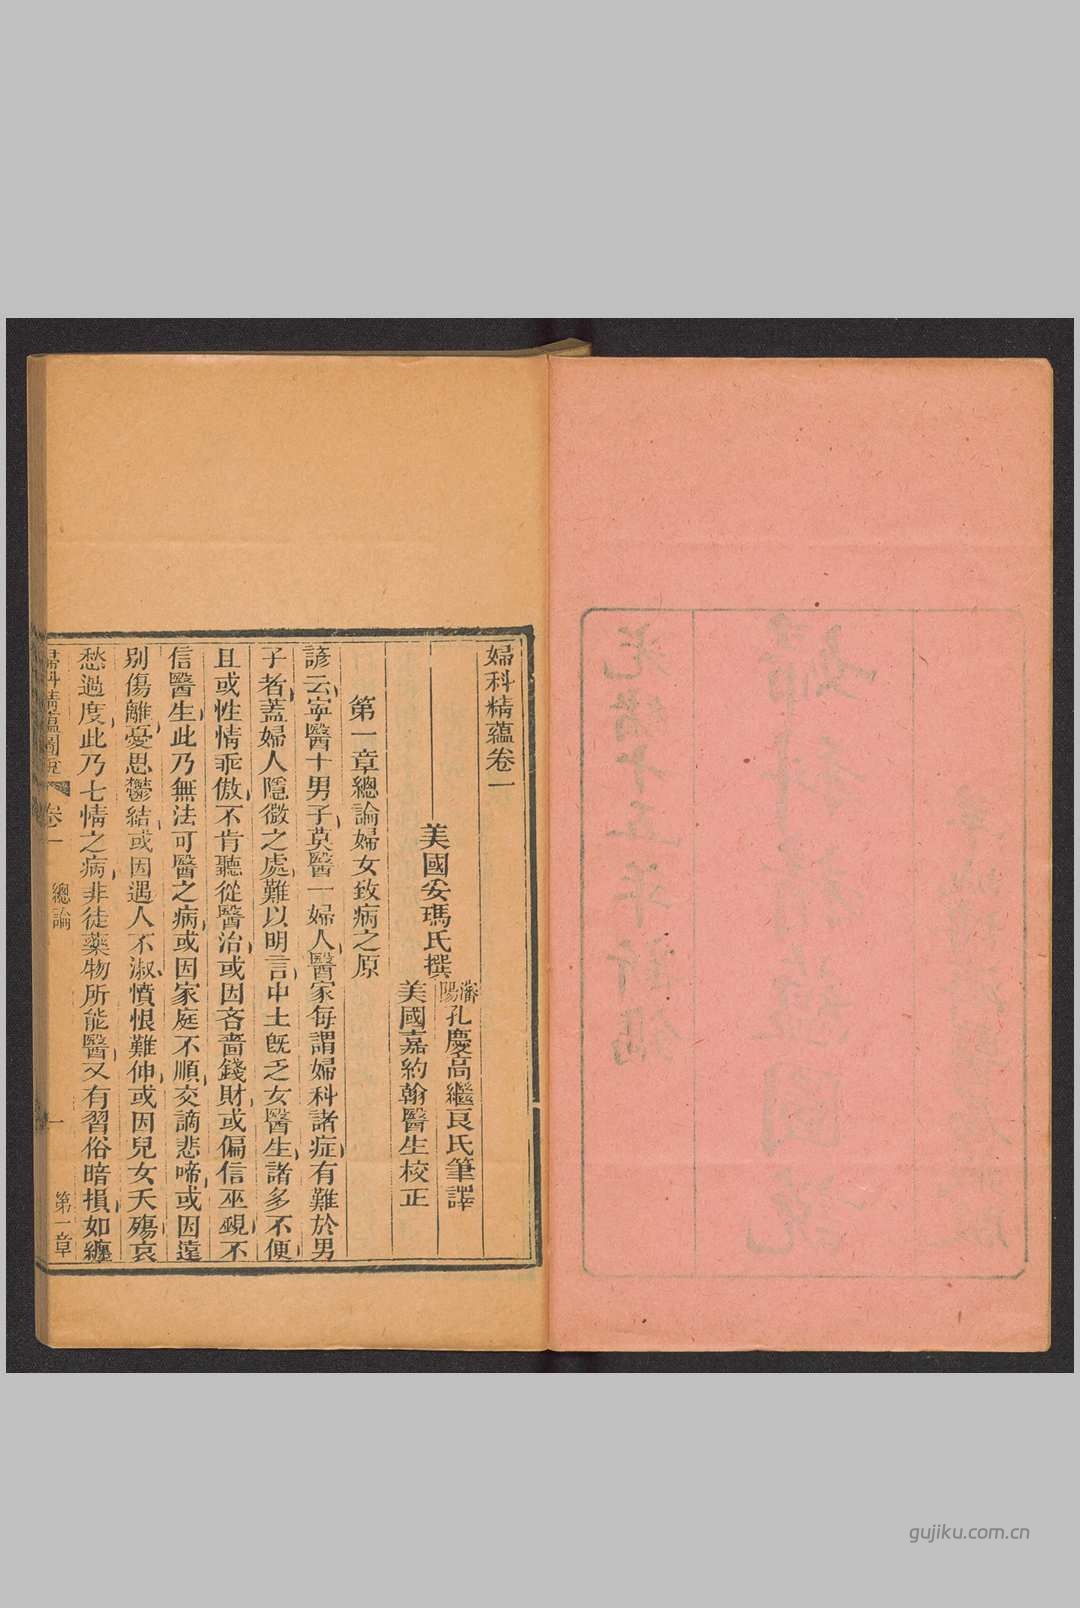 婦科精蘊卷一
美國安瑪氏撰
瀋陽孔慶高繼良氏筆譯
美國嘉約翰醫生校正
第一章總論婦女致病之原
諺云寧醫十男子莫醫一婦人醫家每謂婦科諸症有難於男
子者蓋婦人隱微之處難以明言中土旣乏女醫生諸多不便
且或性情乖傲不肯聽從醫治或因吝嗇錢財或偏信巫覡不
信醫生此乃無法可醫之病或因家庭不順交謫悲啼或因遠
别傷離憂思鬱結或因遇人不淑憤恨難伸或因兒女夭殤哀
愁過度此乃七情之病非徒藥物所能醫又有習俗暗損如纏
婦科精蘊圖說 卷一 總論 一 第一章
gujiku.com.cn